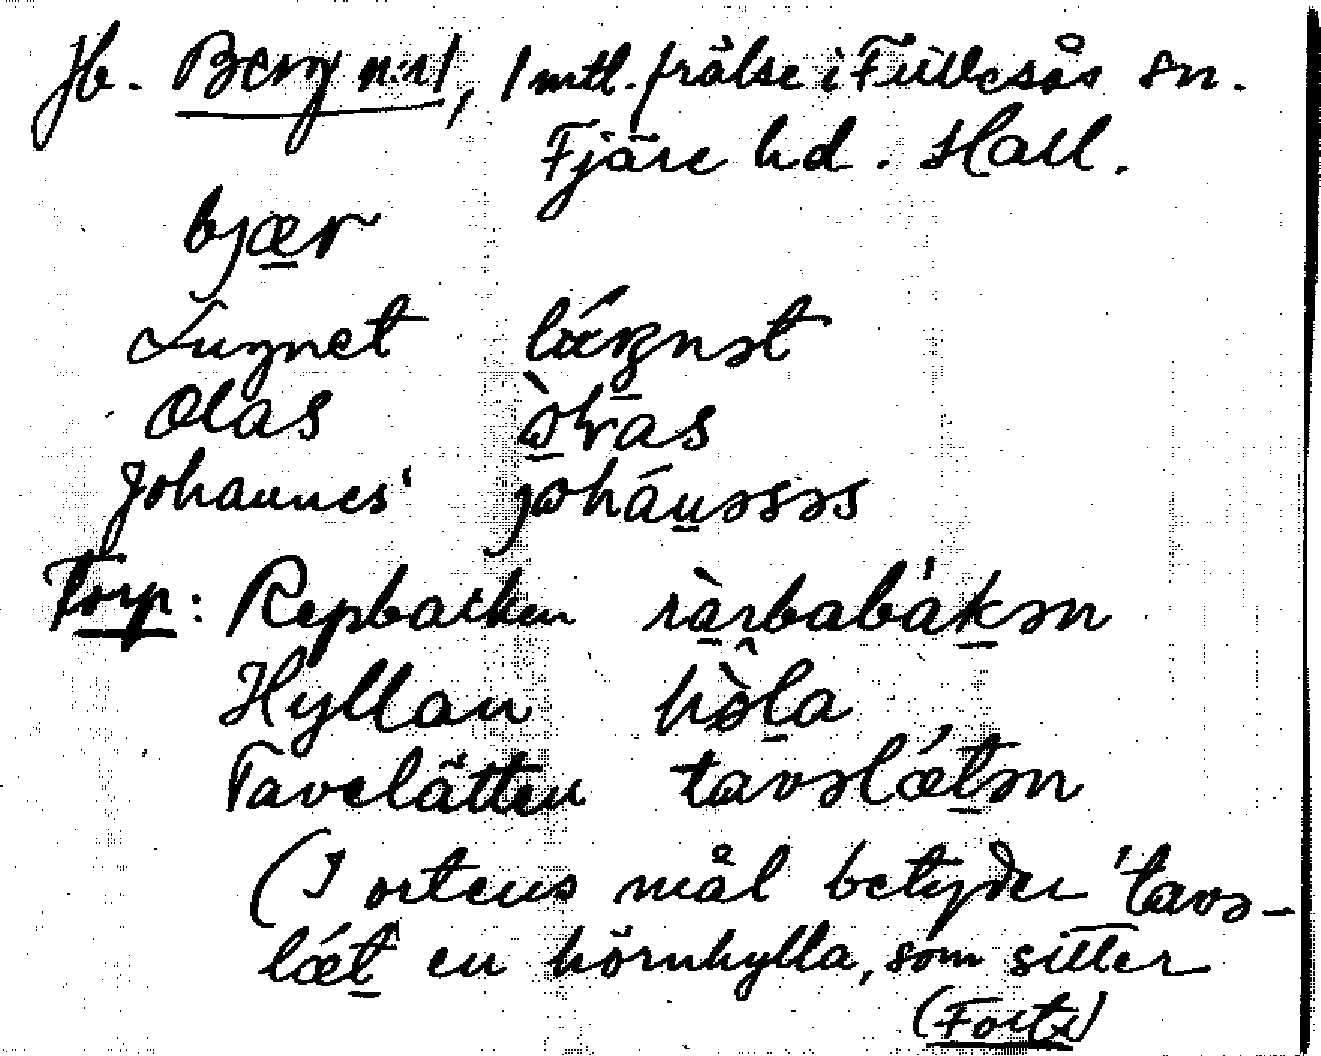 Jb. Berg nr 1, 1 mtl. frälse i Fillesås sn.
Fjäre hd. Hall.
bjær
Lugnet lǿgnət
Olas
Johannes' johánəsəs
Torp: Repbacken rὰrbabákən
Hyllan hö̀la
Tavelätten tavəlǽtən
(I ortens mål betyder 'tavə-
lǽt' en hörnhylla, som sitter
(Forts)